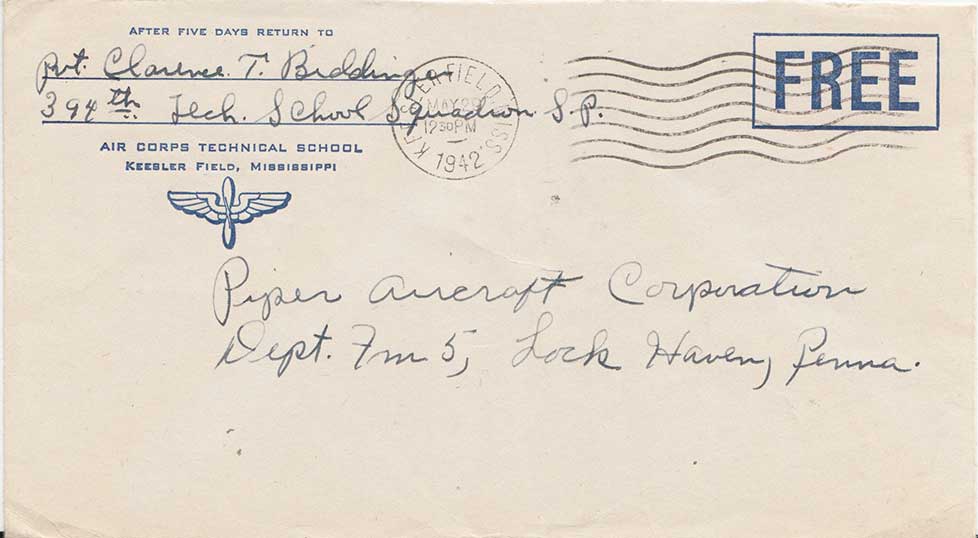 AFTER FIVE DAYS RETURN TO
Pvt. Clarence T. Biddinger
394th Tech. School Squadron S.P.
AIR CORPS TECHNICAL SCHOOL
KEESLER FIELD, MISSISSIPPI
KEESLER FIELD MISS.
MAY 29
12 30 PM
1942
FREE
Piper Aircraft Corporation
Dept. Fm 5, Lock Haven, Penna.